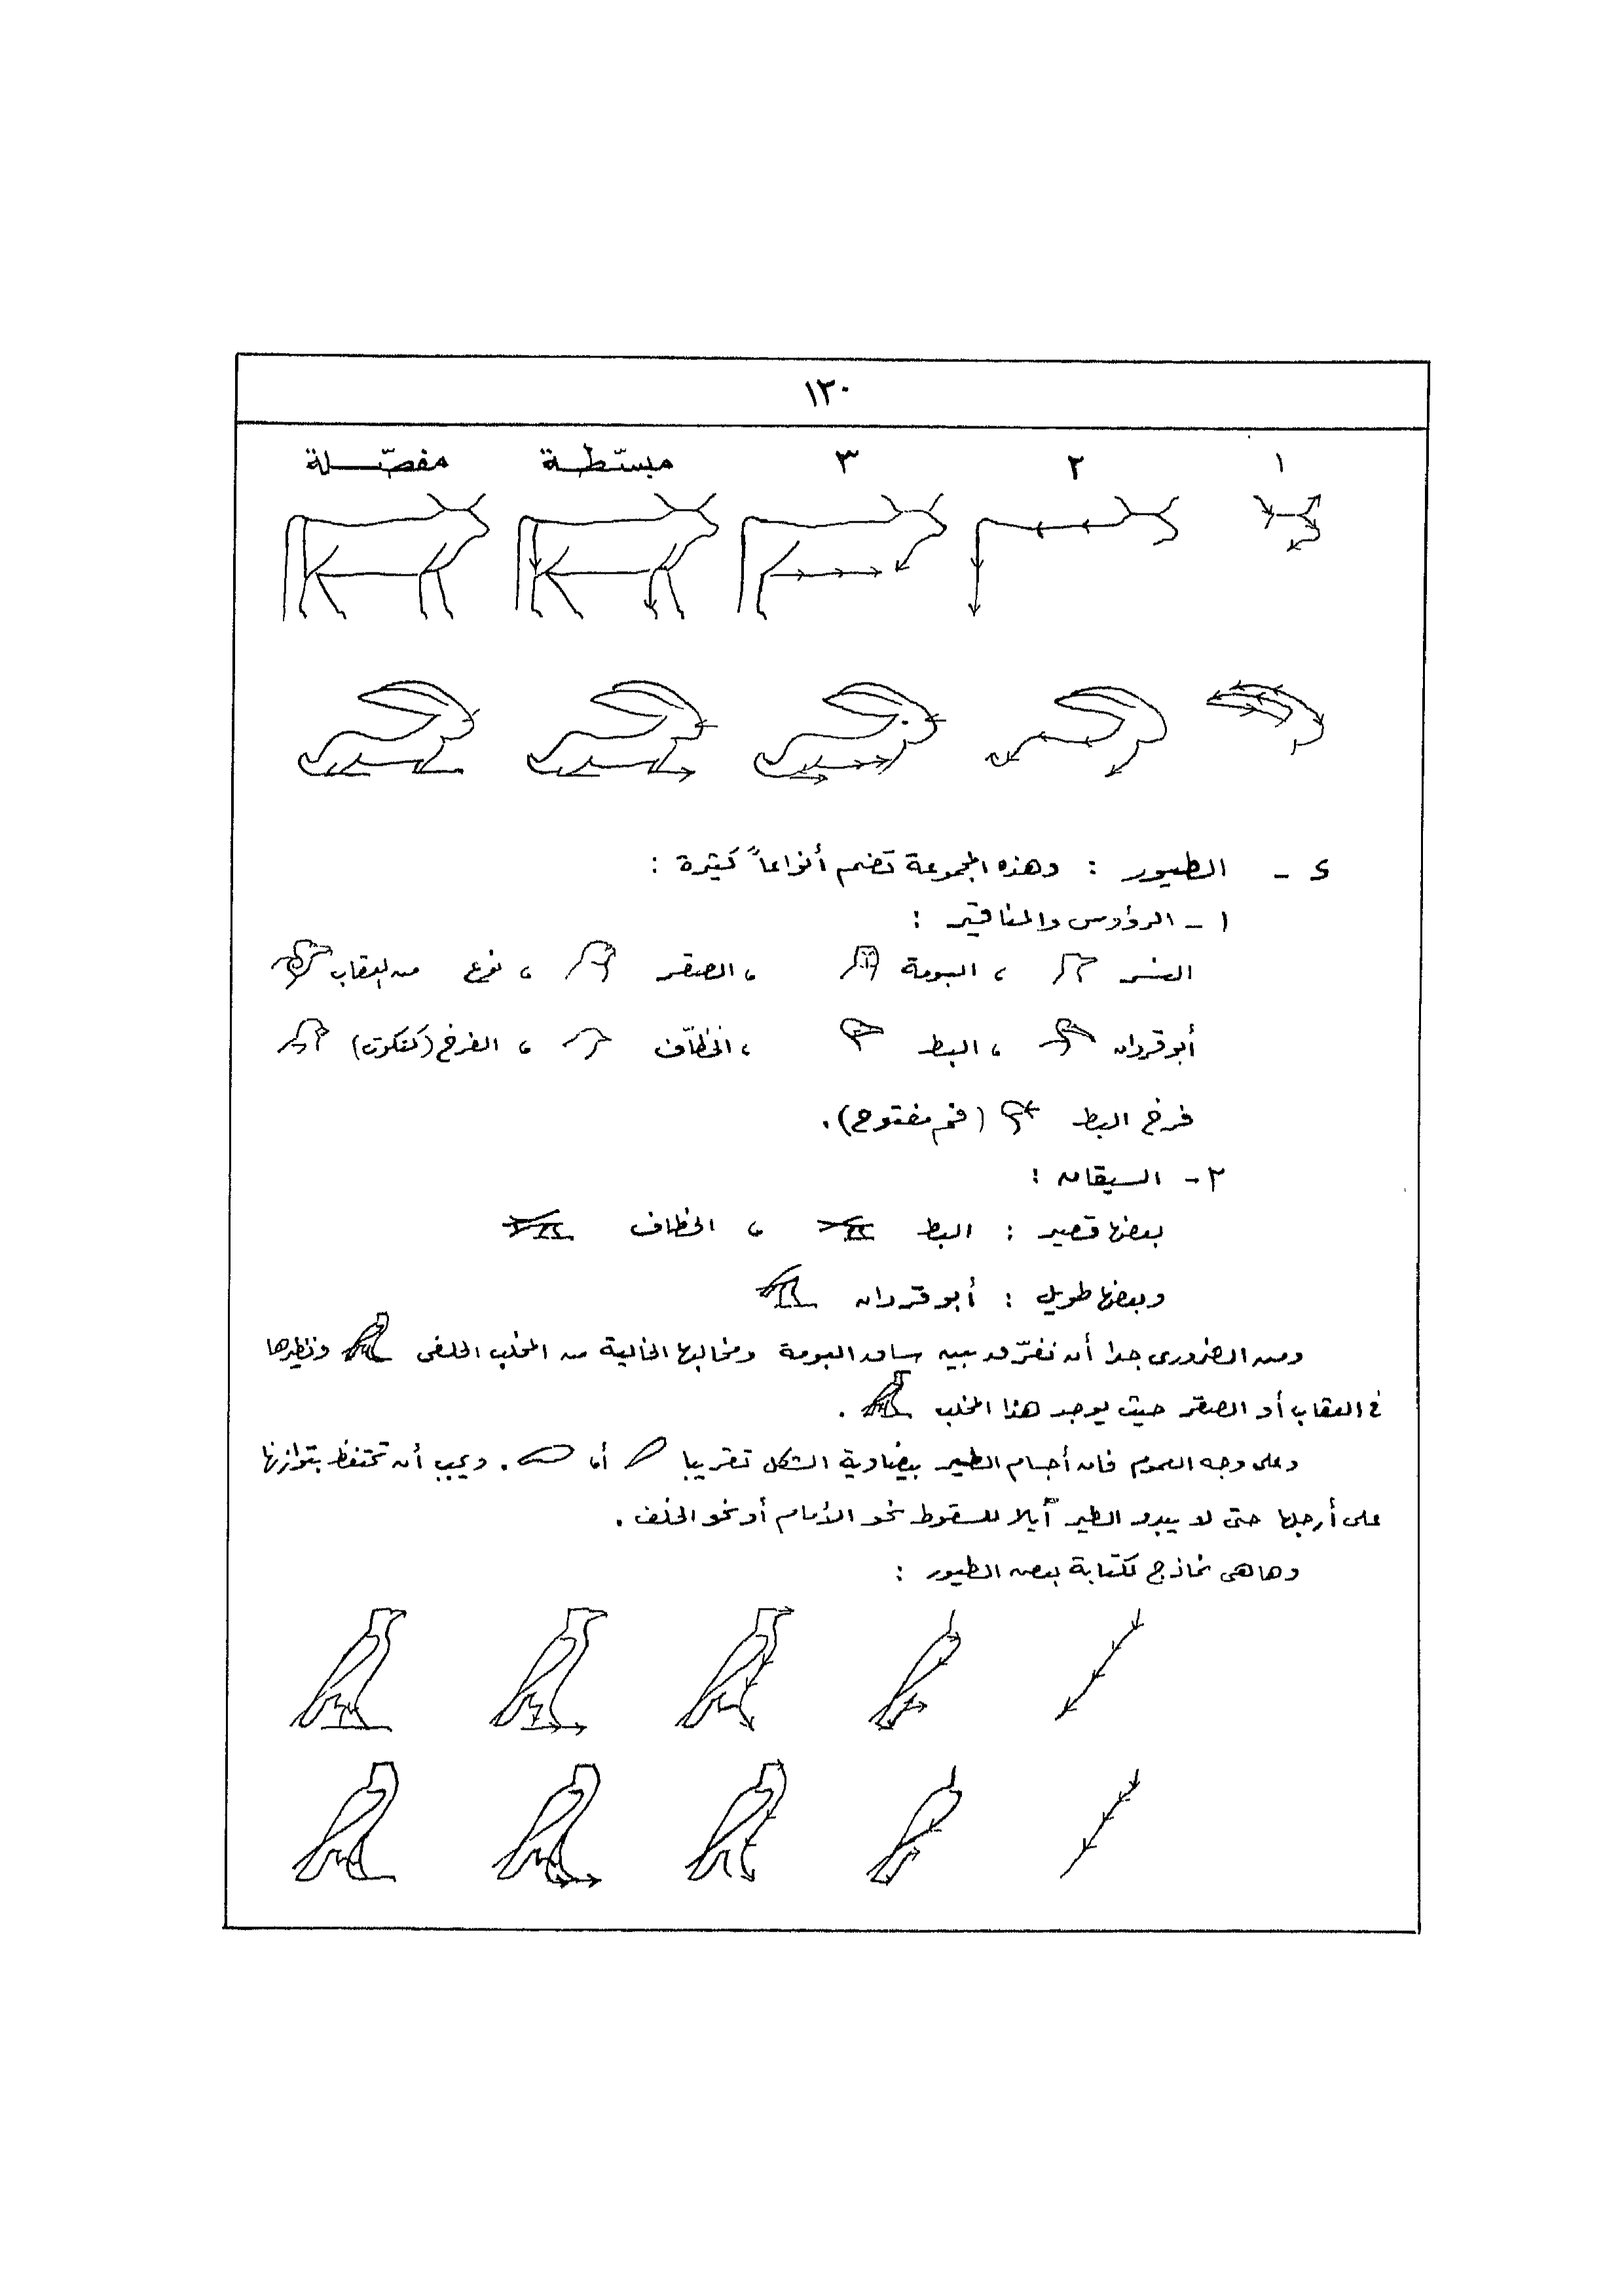 ١٣٠
١ ٢ ٣ مبسّطة مفصّلة
٤ - الطيور : وهذه المجموعة تضم أنواعاً كثيرة :
١ - الرؤوس والمناقير :
النسر ، البومة ، الصقر ، نوع من العقاب
أبو قردان ، البط ، الخطّاف ، الفرخ (كتكوت)
فرخ البط (فم مفتوح) .
٢ - السيقان :
بعضها قصير : البط ، الخطاف
وبعضها طويل : أبو قردان
ومن الضرورى جدا أن نفرّق بين ساق البومة ومخالبها الخالية من المخلب الخلفى ونظيرها
فى العقاب أو الصقر حيث يوجد هذا المخلب .
وعلى وجه العموم فان أجسام الطير بيضاوية الشكل تقريبا أو . ويجب أن تحتفظ بتوازنها
على أرجلها حتى لا يبدو الطير آيلا للسقوط نحو الأمام أو نحو الخلف .
وها هى نماذج لكتابة بعض الطيور :